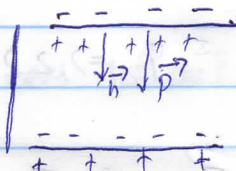 - - - -
+ + + + +
n p
- - - - -
+ + + +